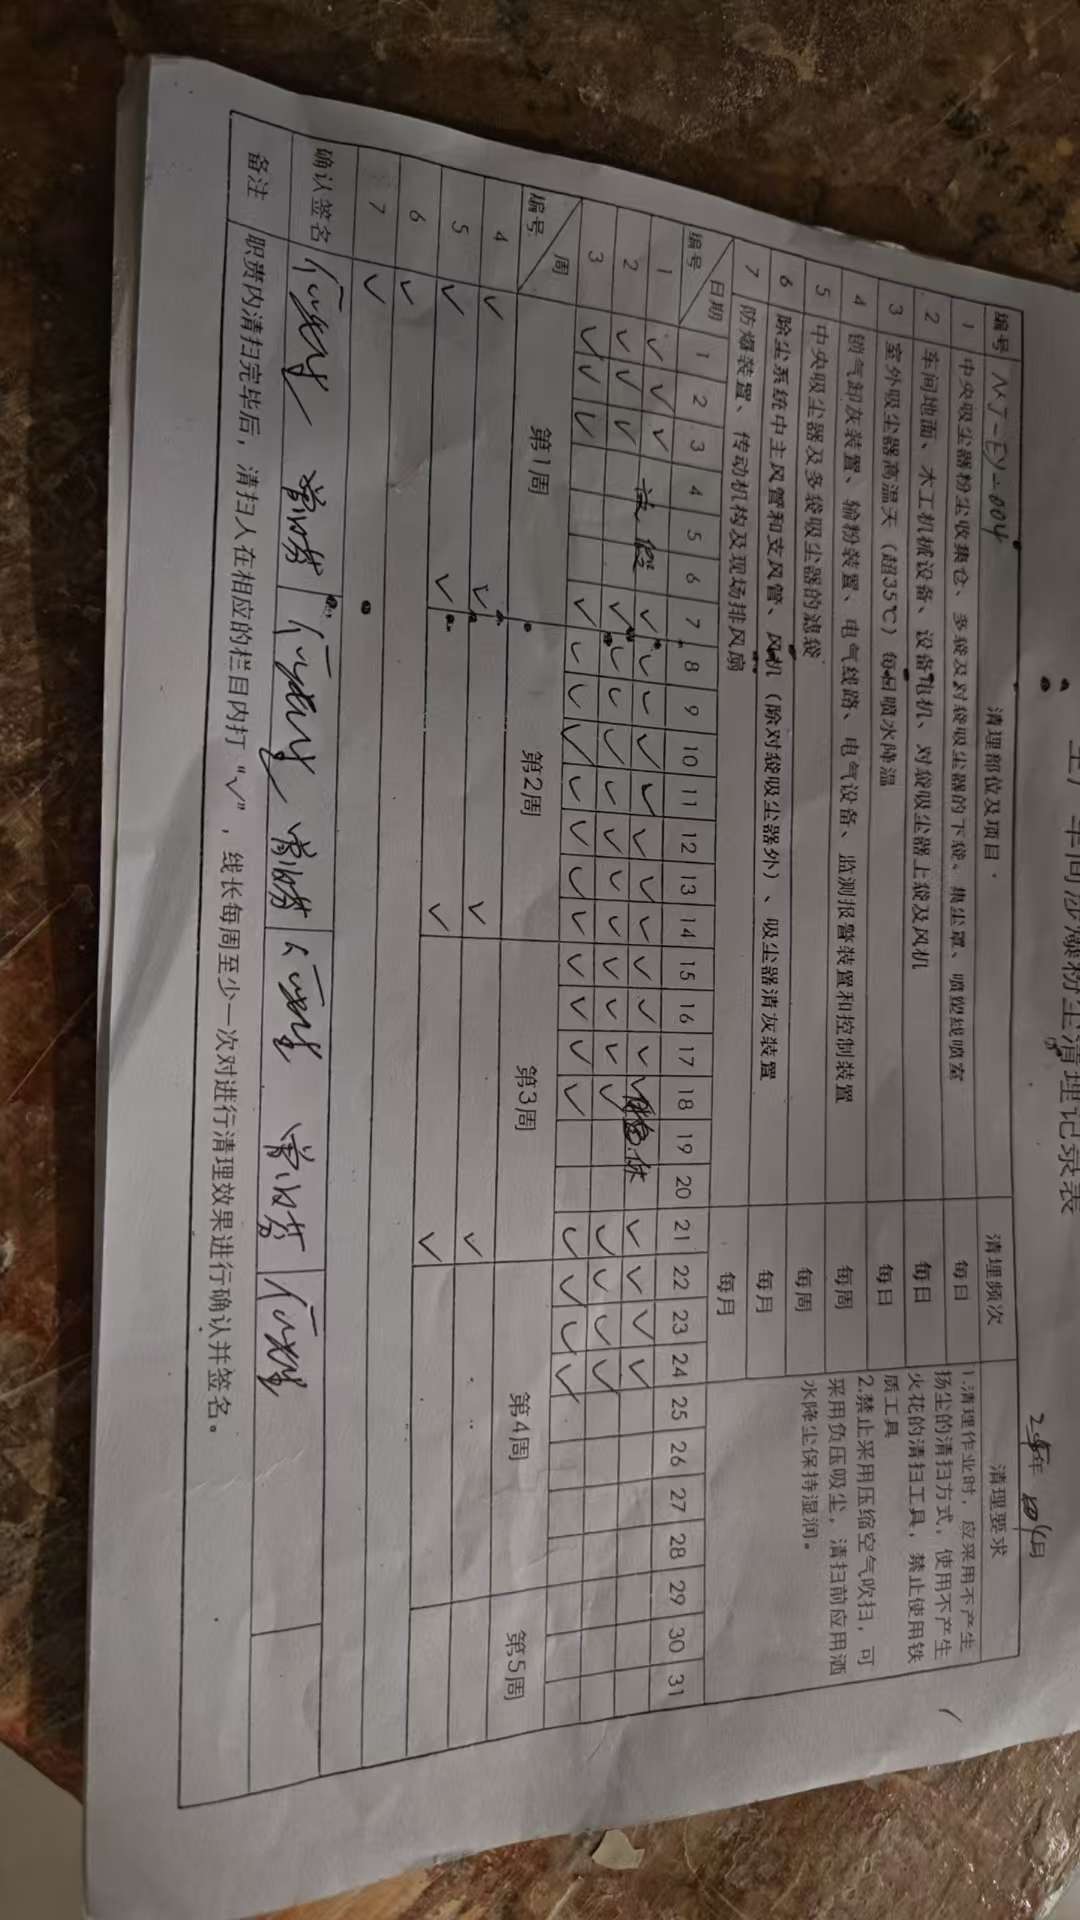 生产车间涉爆粉尘清理记录表
年 月
编号 清理部位及项目 清理频次 清理要求
1 中央吸尘器粉尘收集仓、多袋及对袋吸尘器的下袋、集尘罩、喷塑线喷室 每日
2 车间地面、木工机械设备、设备电机、对袋吸尘器上袋及风机 每日
3 室外吸尘器高温天（超35℃）每日喷水降温 每日
4 锁气卸灰装置、输粉装置、电气线路、电气设备、监测报警装置和控制装置 每周
5 中央吸尘器及多袋吸尘器的滤袋 每周
6 除尘系统中主风管和支风管、风机（除对袋吸尘器外）、吸尘器清灰装置 每月
7 防爆装置、传动机构及现场排风扇 每月
1.清理作业时，应采用不产生
扬尘的清扫方式，使用不产生
火花的清扫工具，禁止使用铁
质工具
2.禁止采用压缩空气吹扫，可
采用负压吸尘，清扫前应用洒
水降尘保持湿润。
日期
编号 1 2 3 4 5 6 7 8 9 10 11 12 13 14 15 16 17 18 19 20 21 22 23 24 25 26 27 28 29 30 31
1 ✓ ✓ ✓ 假 ✓ ✓ ✓ ✓ ✓ ✓ ✓ ✓ ✓ ✓ ✓ ✓ 休 ✓ ✓ ✓ ✓
2 ✓ ✓ ✓ ✓ ✓ ✓ ✓ ✓ ✓ ✓ ✓ ✓ ✓ ✓ ✓ ✓ ✓ ✓ ✓
3 ✓ ✓ ✓ ✓ ✓ ✓ ✓ ✓ ✓ ✓ ✓ ✓ ✓ ✓ ✓ ✓ ✓ ✓ ✓
周
编号 第1周 第2周 第3周 第4周 第5周
4 ✓ ✓ ✓ ✓
5 ✓ ✓ ✓ ✓
6 ✓
7 ✓
确认签名
备注 职责内清扫完毕后，清扫人在相应的栏目内打“√”，线长每周至少一次对进行清理效果进行确认并签名。